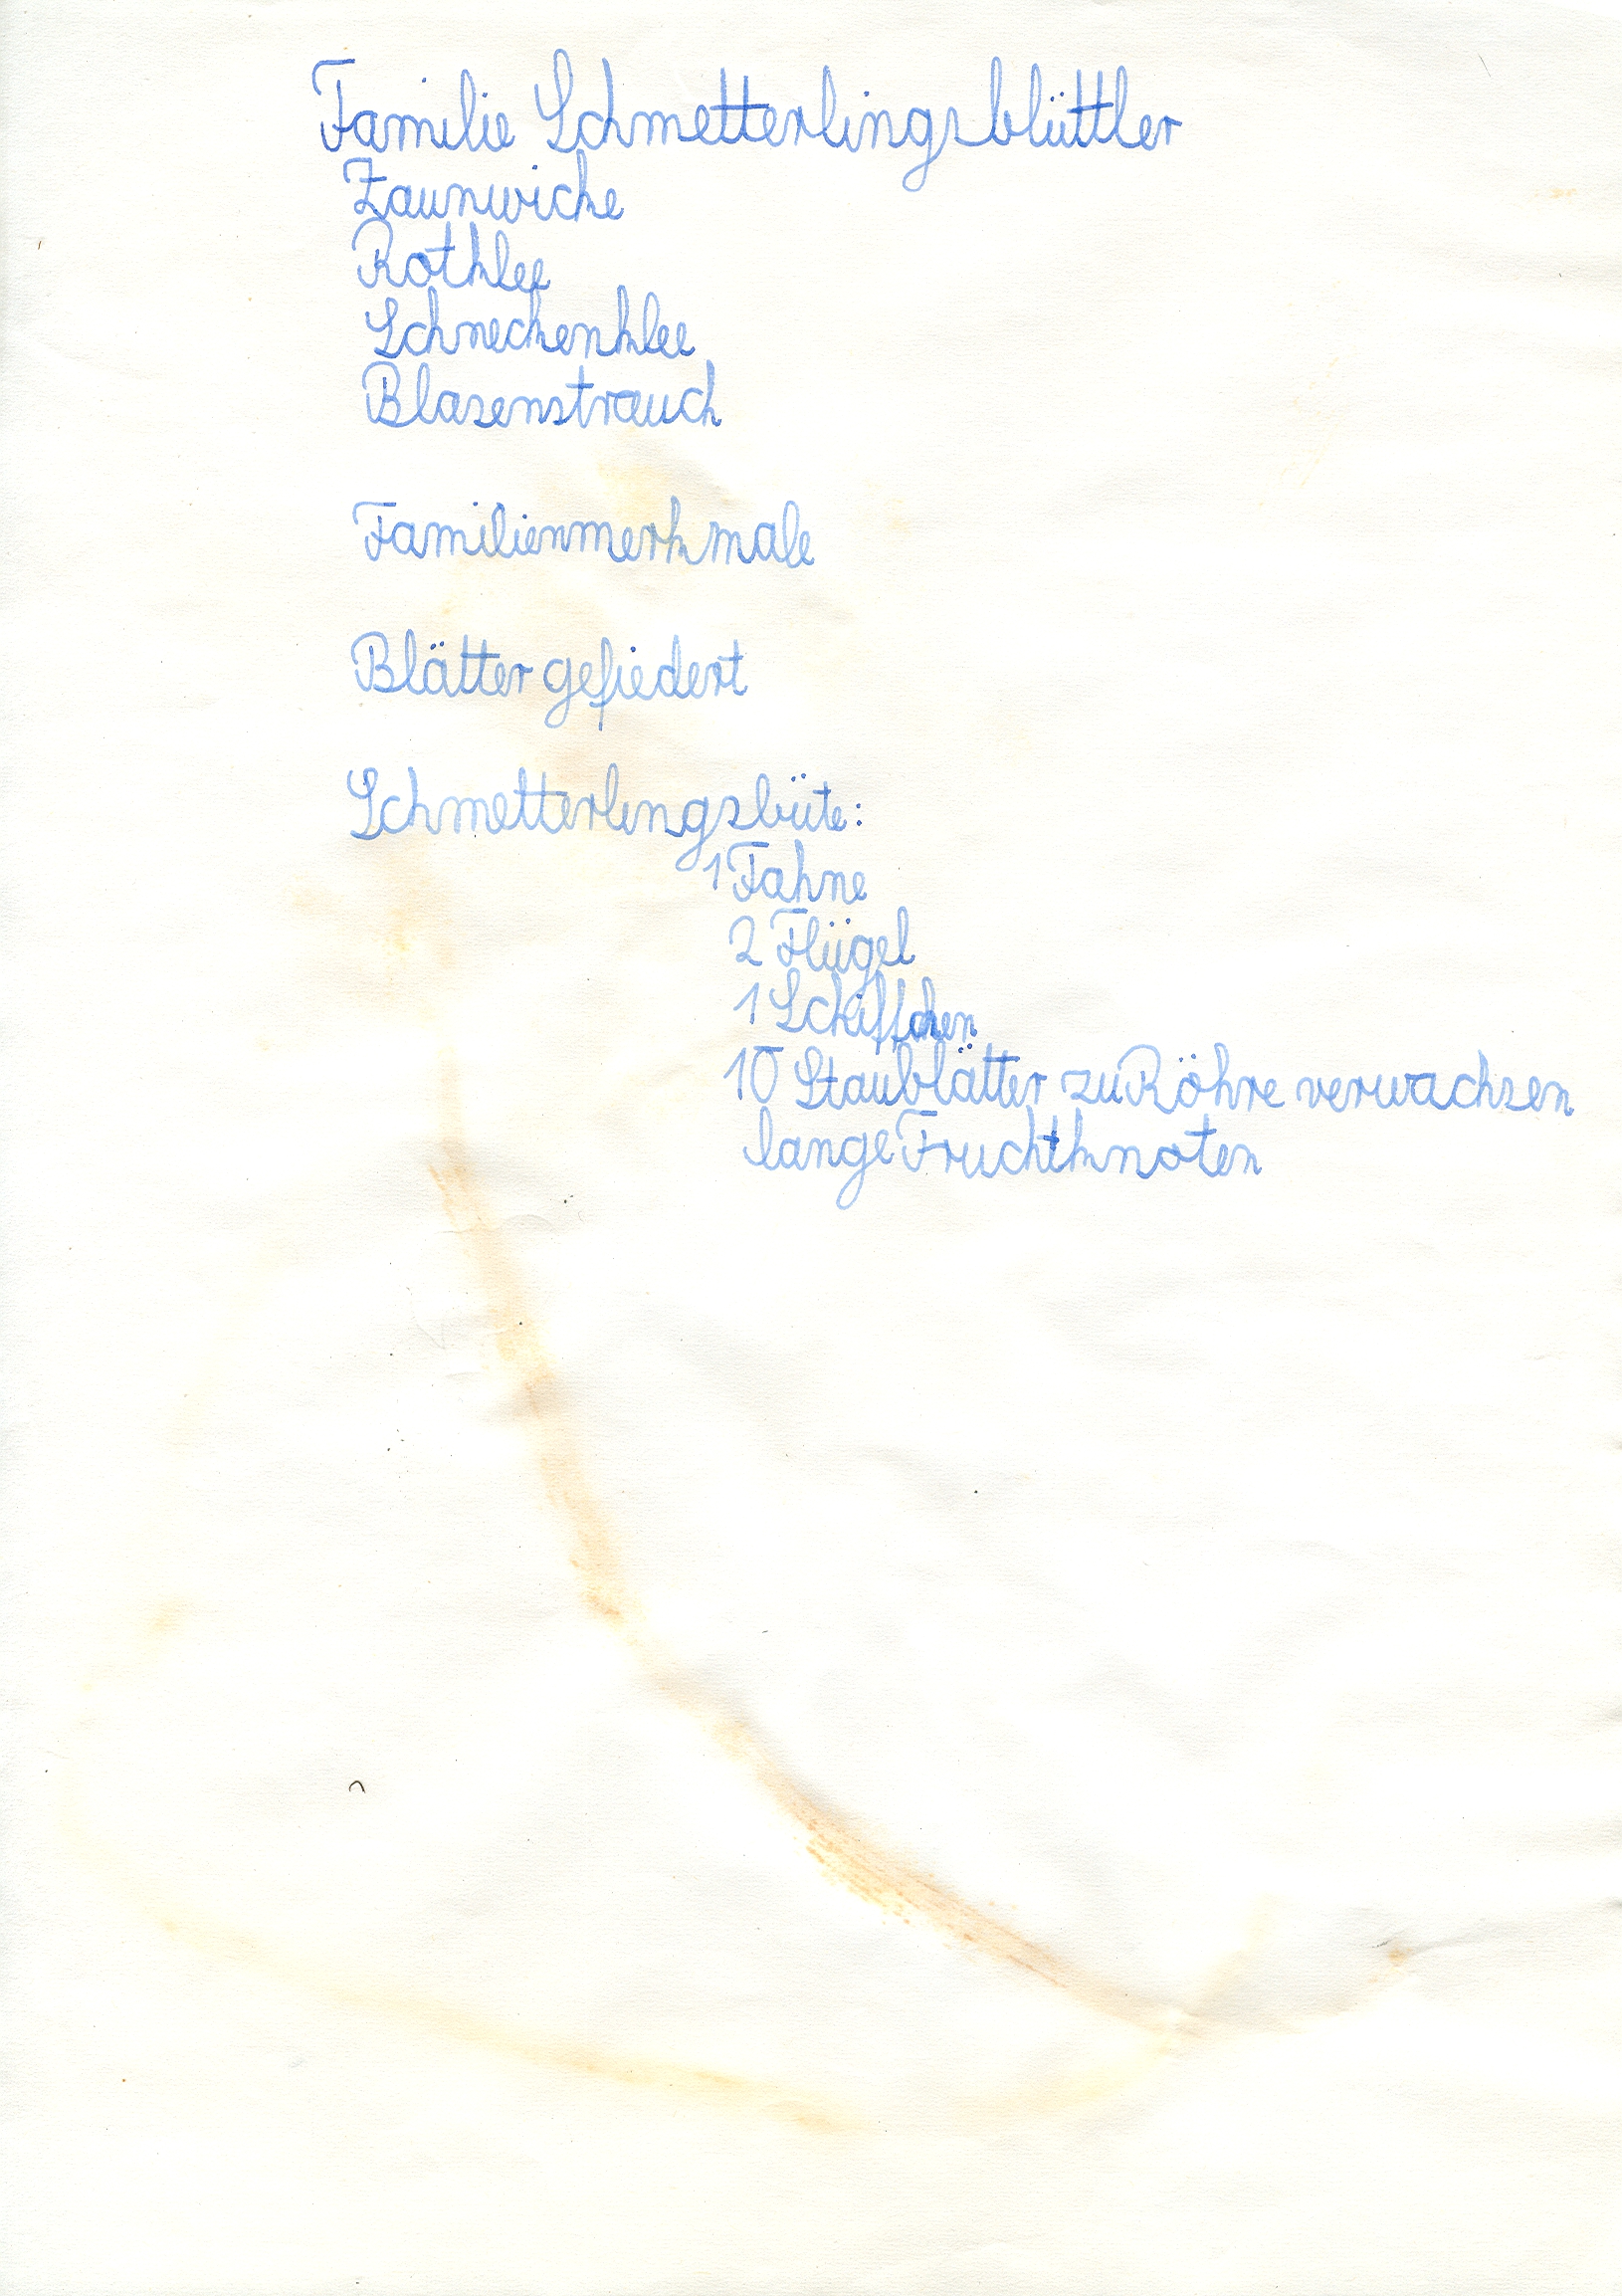 Familie Schmetterlingsblüttler
Zaunwicke
Rotklee
Schneckenklee
Blasenstrauch
Familienmerkmale
Blätter gefiedert
Schmetterlingsbüte:
1 Fahne
2 Flügel
1 Schiffchen
10 Staublätter zu Röhre verwachsen
lange Fruchtknoten